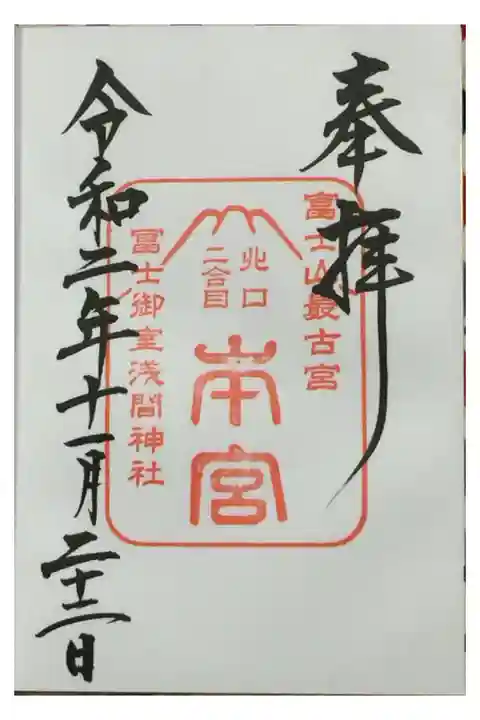 奉拝
富士山最古宮
北口
二合目
本宮
冨士御室浅間神社
令和二年十一月二十二日